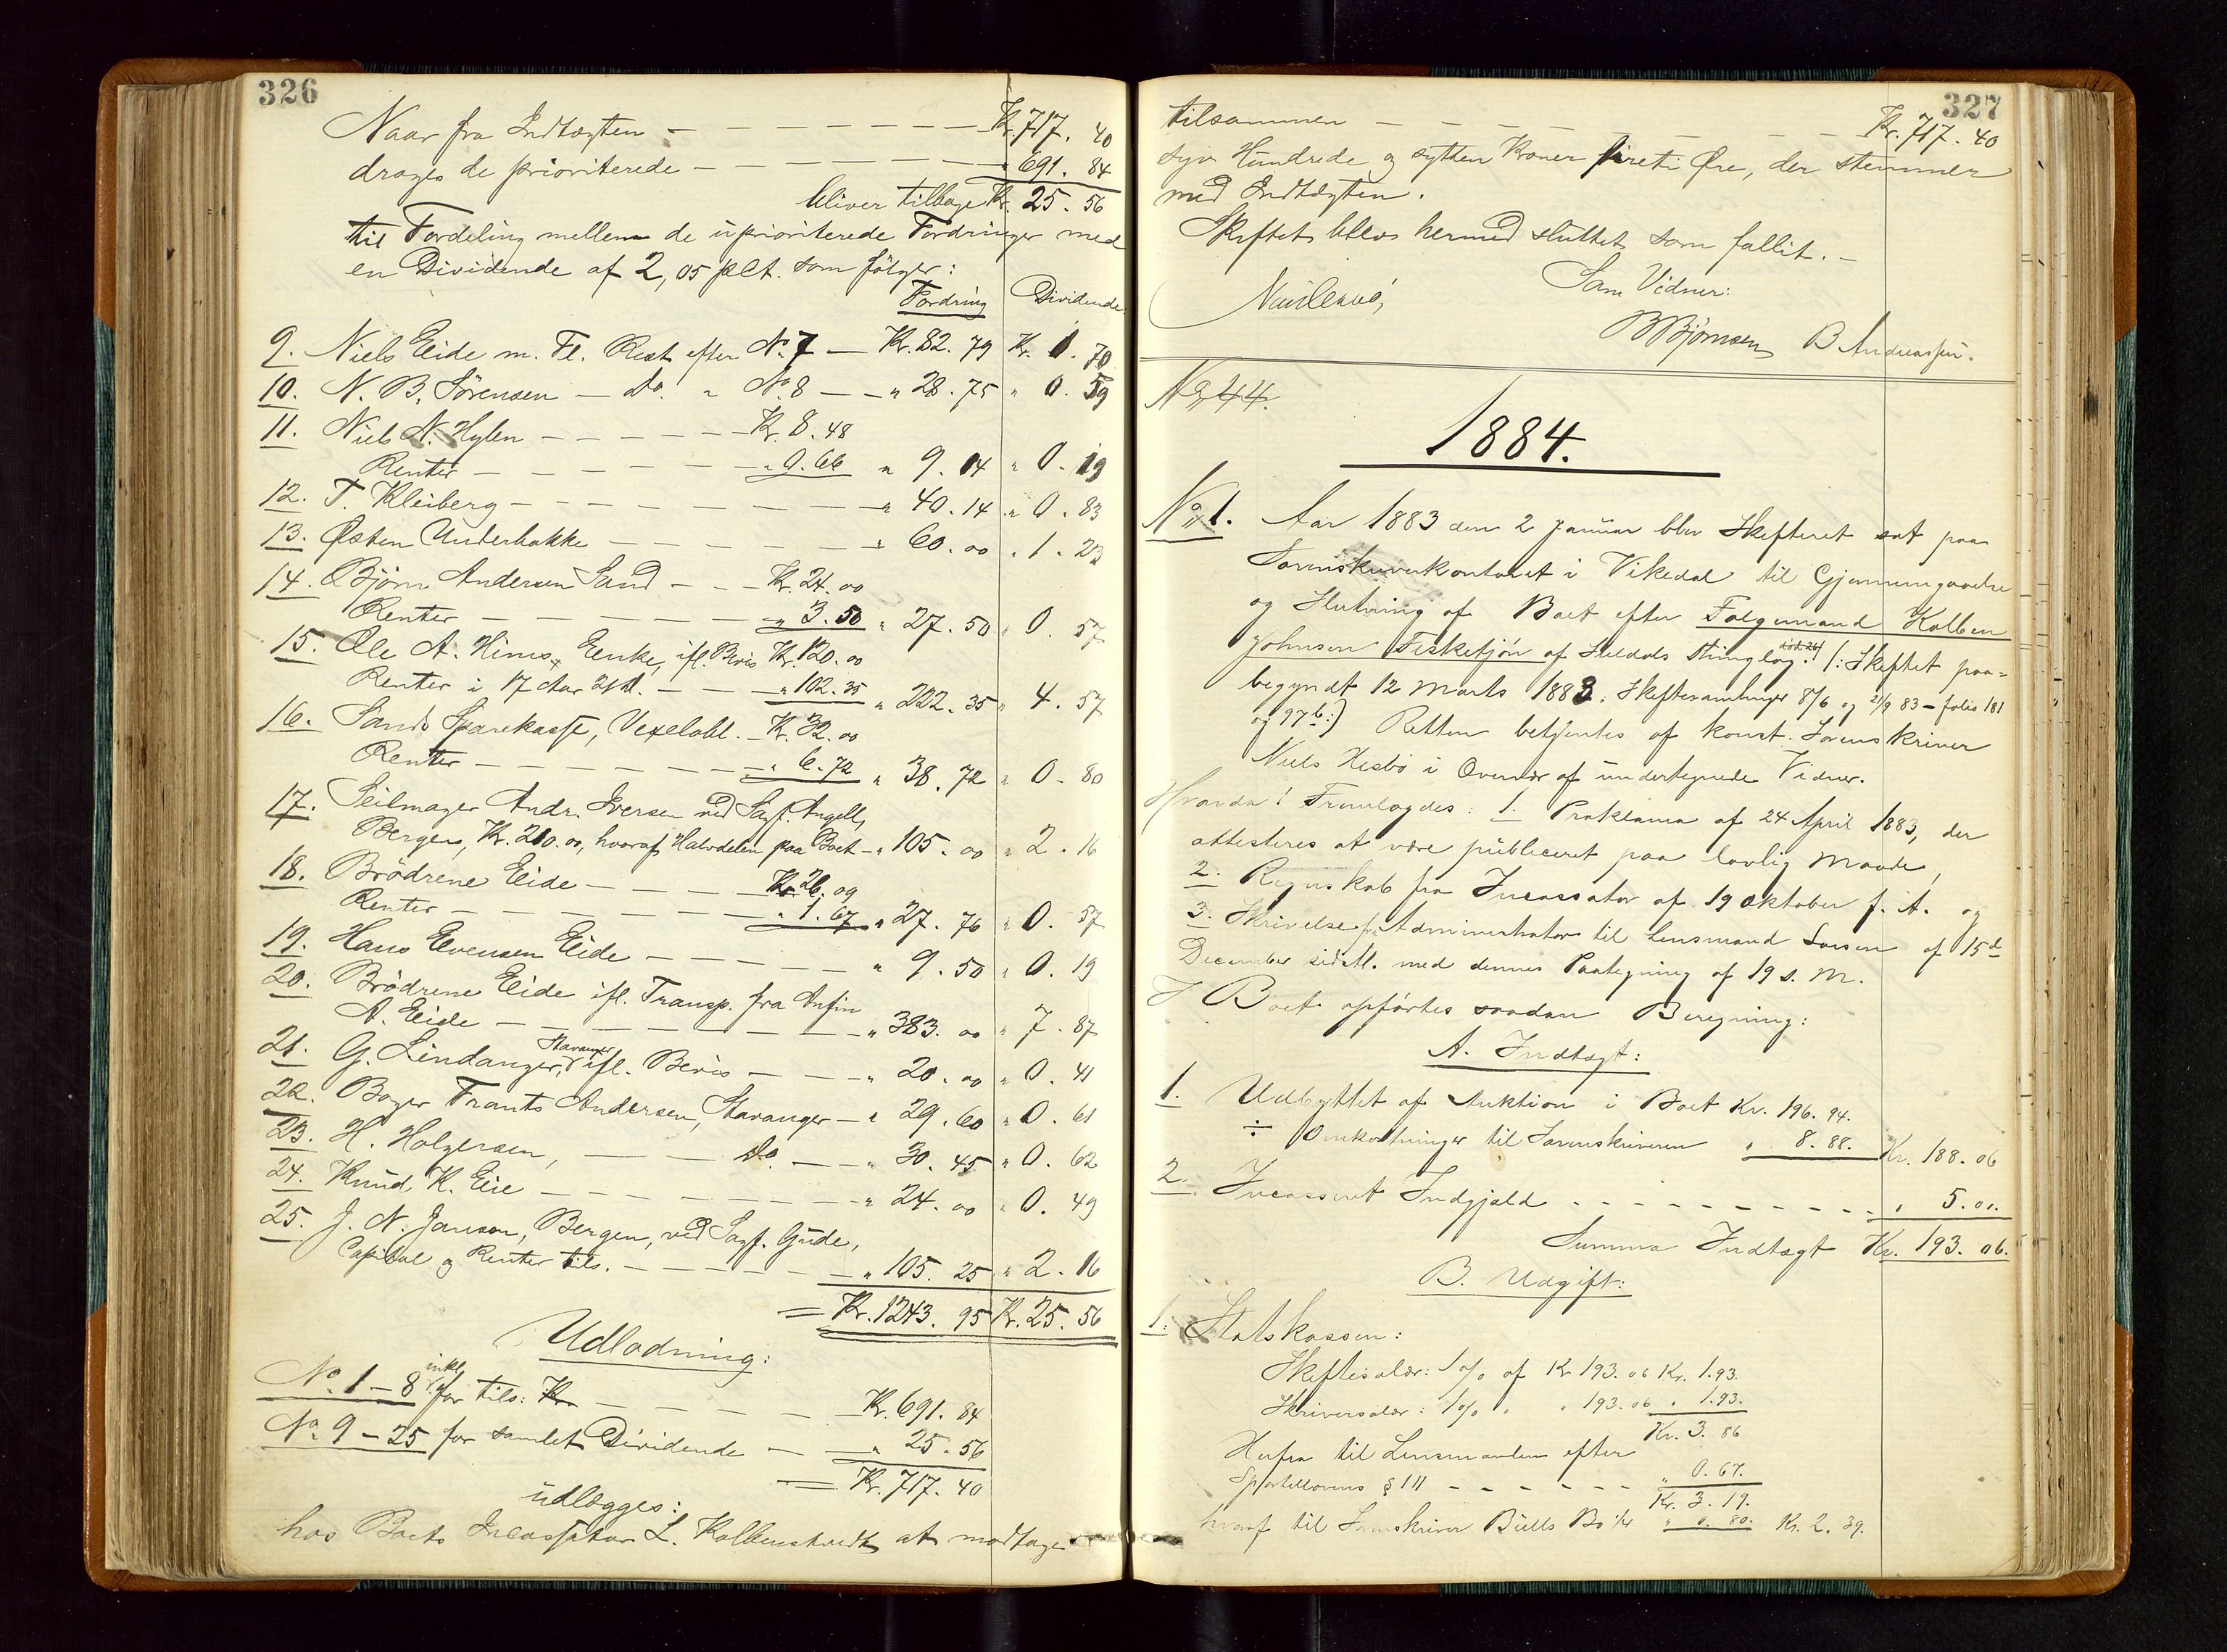 326
Naar fra Indtægten — — — — — — — Kr. 717. 40
drages de prioriterede — — — — — — — " 691. 84
bliver tilbage Kr. 25. 56
til Fordeling mellem de uprioriterede Fordringer med
en Dividende af 2,05 pCt. som følger:
Fordring Dividende
9. Niels Eide m. Fl. Rest efter No. 7 — Kr. 82. 79 Kr. 1. 70
10. N. B. Sørensen — do. " No. 8 — — " 28. 75 " 0. 59
11. Niels N. Hylen — — — — — Kr. 8. 48
Renter — — — — — — " 0. 66 " 9. 14 " 0. 19
12. T. Kleiberg — — — — — — — — " 40. 14 " 0. 83
13. Østen Underbakke — — — — — — " 60. 00 " 1. 23
14. Bjørn Andersen Sand — — Kr. 24. 00
Renter — — — — — — " 3. 50 " 27. 50 " 0. 57
15. Ole A. Hiims Enke, ifl. Bevis Kr. 120. 00
Renter i 17 Aar — — — " 102. 35 " 222. 35 " 4. 57
16. Sands Sparekasse, Vexelobl. — Kr. 32. 00
Renter — — — — — — " 6. 72 " 38. 72 " 0. 80
17. Seilmager Andr. Iversen ved Sagf. Angell,
Bergen, Kr. 210. 00, hvoraf Halvdelen paa Boet — " 105. 00 " 2. 16
18. Brødrene Eide — — — — Kr. 26. 09
Renter — — — — — — " 1. 67 " 27. 76 " 0. 57
19. Hans Evensen Eide — — — — — " 9. 50 " 0. 19
20. Brødrene Eide ifl. Transp. fra Anfin
A. Eide — — — — — — — — " 383. 00 " 7. 87
21. G. Lindanger, Stavanger ifl. Bevis — — — " 20. 00 " 0. 41
22. Bager Frants Andersen, Stavanger — " 29. 60 " 0. 61
23. H. Holgersen, — — do. — — " 30. 45 " 0. 62
24. Knud K. Eie — — — — — — — " 24. 00 " 0. 49
25. J. N. Janson, Bergen, ved Sagf. Gude,
Capital og Renter tils. — — — — — " 105. 25 " 2. 16
= Kr. 1243. 95 Kr. 25. 56
Udlodning:
No. 1 – 8 inkl. for tils: Kr. — — — — Kr. 691. 84
No. 9 – 25 for samlet Dividende — — " 25. 56
= Kr. 717. 40
udlægges:
hos Boets Incassator L. Kolbenstvedt at modtage
327
tilsammen — — — — — — — — Kr. 717. 40
syv Hundrede og sytten Kroner fireti Øre, der stemmer
med Indtægten.
Skiftet blev hermed sluttet som fallit. —
Som Vidner:
B Bjørnsen B Andreassen.
No. 44.
1884.
No. 1. Aar 1883 den 2 Januar blev Skifteret sat paa
Sorenskriverkontoret i Vikedal til Gjennemgaaelse
og Slutning af Boet efter Følgemand Kolben
Johnsen Fisketjøn af Suldals Thinglag. (: Skiftet paa-
begyndt 12 Marts 1883. Skiftesamlinger 8/6 og 21/9 83 – folio 181
og 97 b:) Retten betjentes af konst. Sorenskriver
Niels Hesbø i Overvær af undertegnede Vidner.
Hvorda! Fremlagdes: 1. Proklama af 24 April 1883, der
attesteres at være publiceret paa lovlig Maade,
2. Regnskab fra Incassator af 19 Oktober f. A. og
3. Skrivelse fra Administrator til Lensmand Larsen af 15d
December sidstl. med dennes Paategning af 19 s. M.
I Boet opførtes saadan Beregning:
A. Indtægt:
1. Udbyttet af Auktion i Boet Kr. 196. 94.
÷ Omkostninger til Sorenskriveren " 8. 88. Kr. 188. 06
2. Incasseret Indgjæld - - - - - - - - - " 5. 00.
Summa Indtægt Kr. 193. 06.
B. Udgift:
1. Statskassen:
Skiftesalær: 1 o/o af Kr 193. 06 Kr. 1.93.
Skriversalær: 1 o/o " " 193. 06 " 1.93.
Kr. 3. 86
Herfra til Lensmanden efter
Sportellovens § 111 - - - - - - " 0. 67.
Kr. 3. 19.
hvoraf til Sorenskriver Bulls Bo 1/4 " 0. 80. Kr. 2. 39.